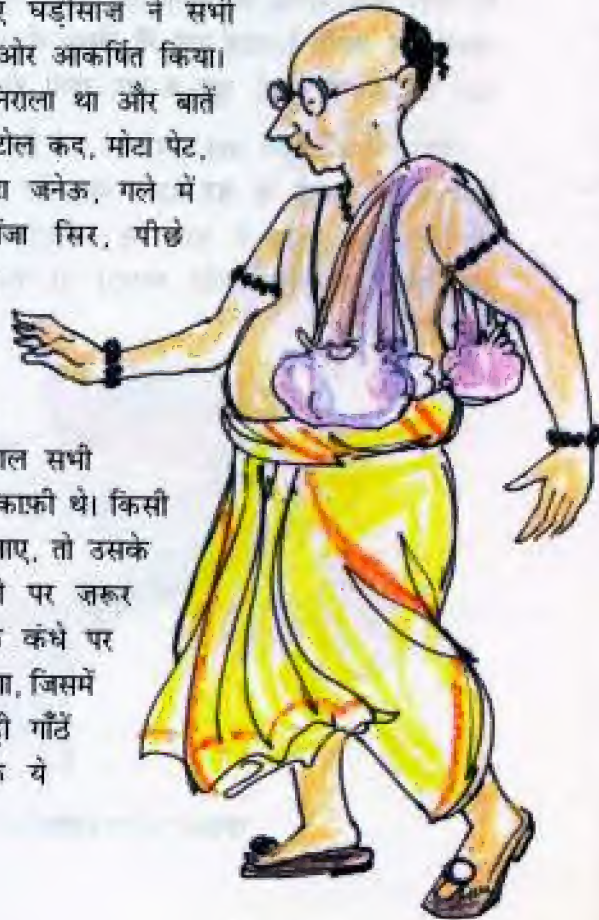 घड़ीसाज़ ने सभी
ओर आकर्षित किया।
निराला था और बातें
डौल कद, मोटा पेट,
जनेऊ, गले में
गंजा सिर, पीछे
सभी
काफ़ी थे। किसी
जाए, तो उसके
पर ज़रूर
कंधे पर
जिसमें
गाँठें
ये